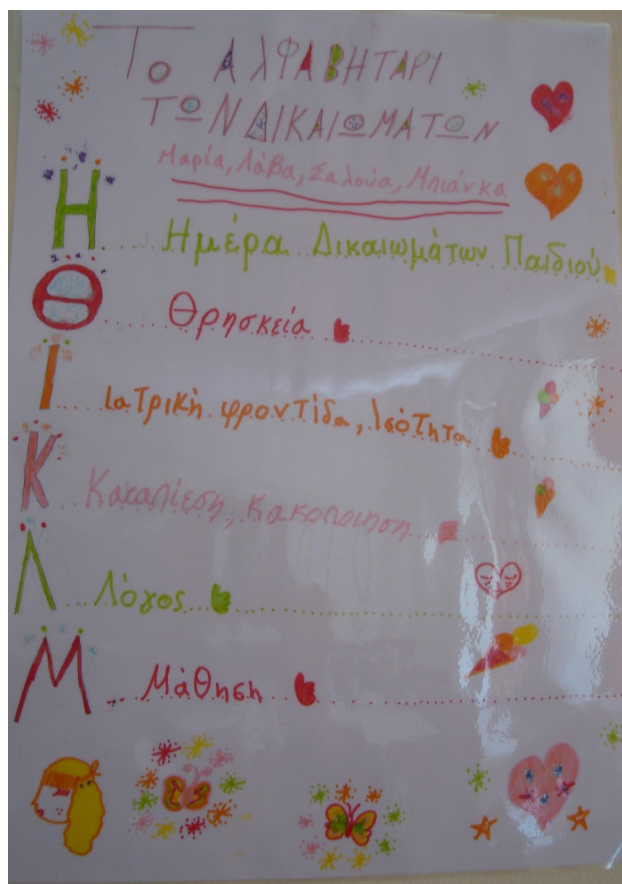 ΤΟ ΑΛΦΑΒΗΤΑΡΙ
ΤΩΝ ΔΙΚΑΙΩΜΑΤΩΝ
Μαρία, Λάβα, Σαλούα, Μπιάνκα
Η ..... Ημέρα Δικαιωμάτων Παιδιού
Θ ..... Θρησκεία
Ι ..... Ιατρική φροντίδα, Ισότητα
Κ Καταπίεση, Κακοποίηση
Λ ... Λόγος
Μ ... Μάθηση